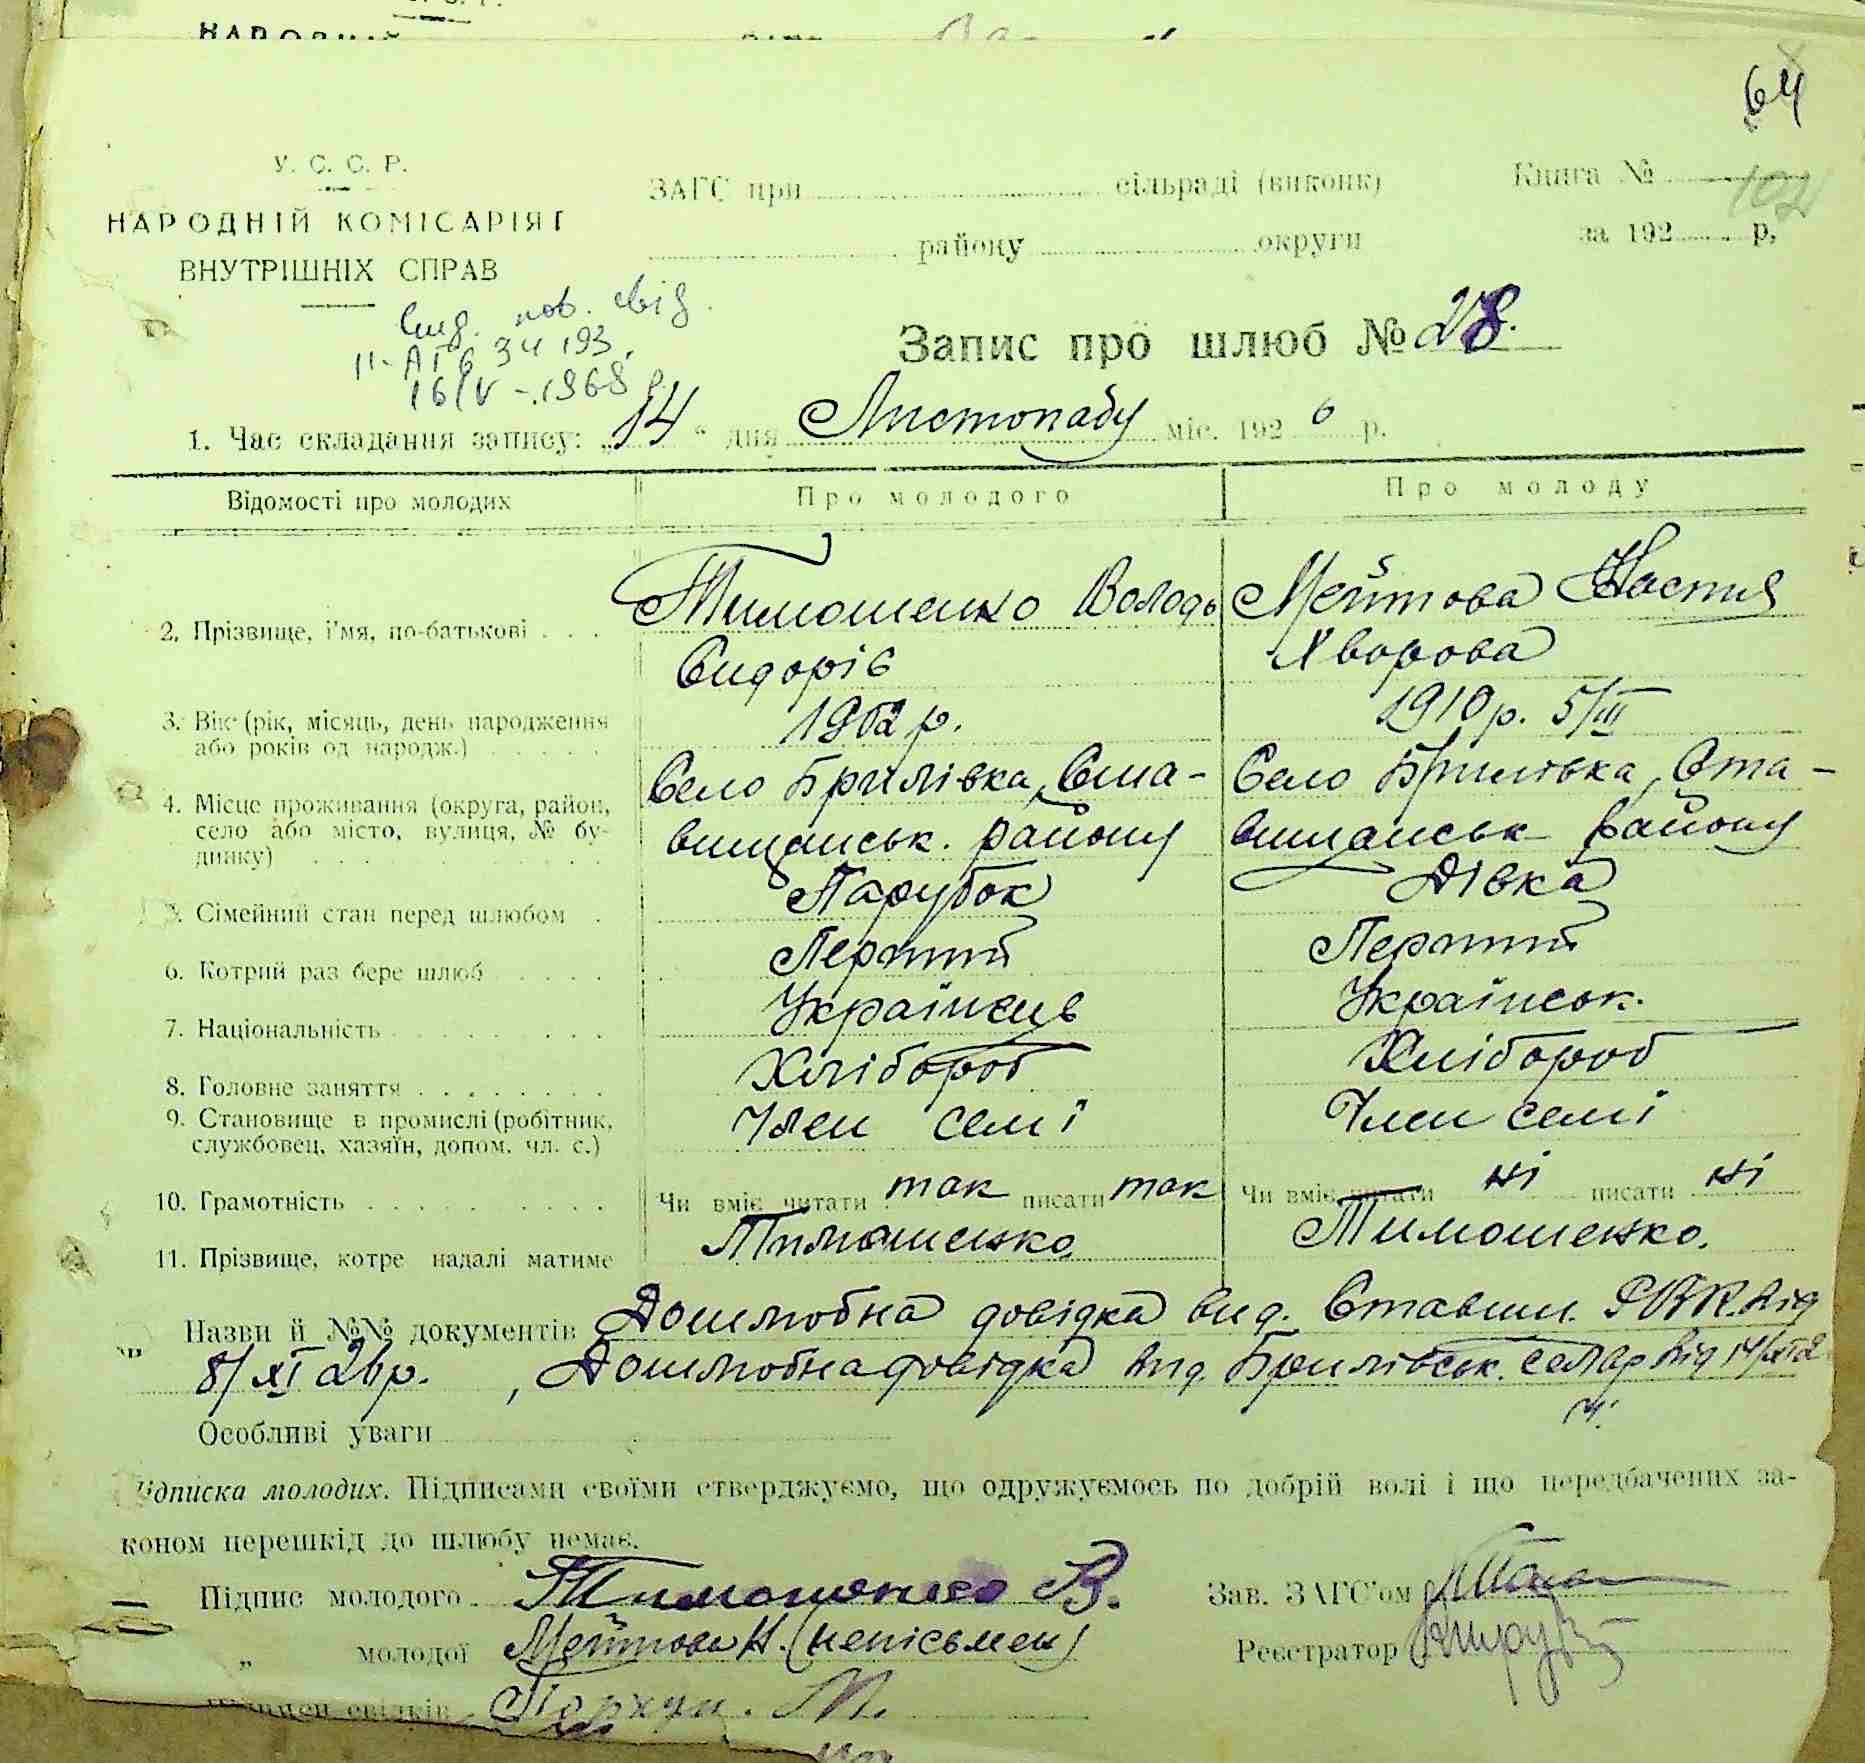 64
У. С. С. Р.
НАРОДНІЙ КОМІСАРІЯТ
ВНУТРІШНІХ СПРАВ
ЗАГС при сільраді (виконк)
району округи
Книга №
102
за 192 р,
вид. пов. свід.
II-АГ 6 34193
16/V-.1968 р.
Запис про шлюб № 28.
1. Час складання запису: „14“ дня Листопаду міс. 1926 р.
Відомості про молодих Про молодого Про молоду
2. Прізвище, і'мя, по-батькові . . . Тимошенко Володь Мейтова Настя
Сидорів Яворова
3. Вік (рік, місяць, день народження 1902 р. 1910 р. 5/III
або років од народж.)
4. Місце проживання (округа, район, Село Брилівка, Ста- Село Брилівка, Ста-
село або місто, вулиця, № бу- вищанськ. району вищанськ району
динку)
5. Сімейний стан перед шлюбом . Парубок Дівка
6. Котрий раз бере шлюб Перший Перший
7. Національність Українець Українськ.
8. Головне заняття Хлібороб Хлібороб
9. Становище в промислі (робітник, Член семі Член семі
службовец, хазяїн, допом. чл. с.)
10. Грамотність Чи вміє читати так писати так Чи вміє читати ні писати ні
11. Прізвище, котре надалі матиме Тимошенко Тимошенко.
Назви й №№ документів Дошлюбна довідка вид. Ставищ. РВК від
8/XI 26 р. , Дошлюбна довідка вид. Брилівськ. від 14/XI 2
Особливі уваги
Підписка молодих. Підписами своїми стверджуємо, що одружуємось по добрій волі і що передбачених за-
коном перешкід до шлюбу немає.
Підпис молодого Тимошенко В. Зав. ЗАГС'ом
„ молодої Мейтова Н. (непісьмен) Реєстратор
Підписи свідків М.